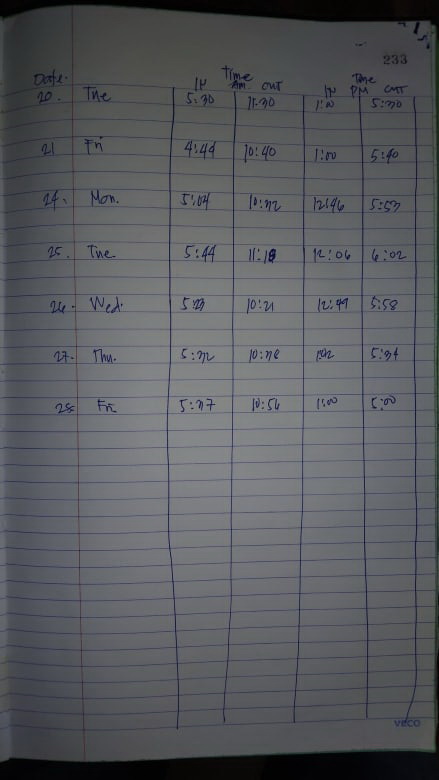 233
Date. Time Time
IN Am. OUT IN PM OUT
20. Tue 5:30 11:30 1:00 5:30
21 Fri 4:44 10:40 1:00 5:40
24. Mon. 5:04 12:46 5:53
25. Tue. 5:44 11:18 12:06 6:02
26. Wed. 10:21 12:49 5:58
27. Thu. 5:34
28 Fri 10:56 1:00 5:00
VECO